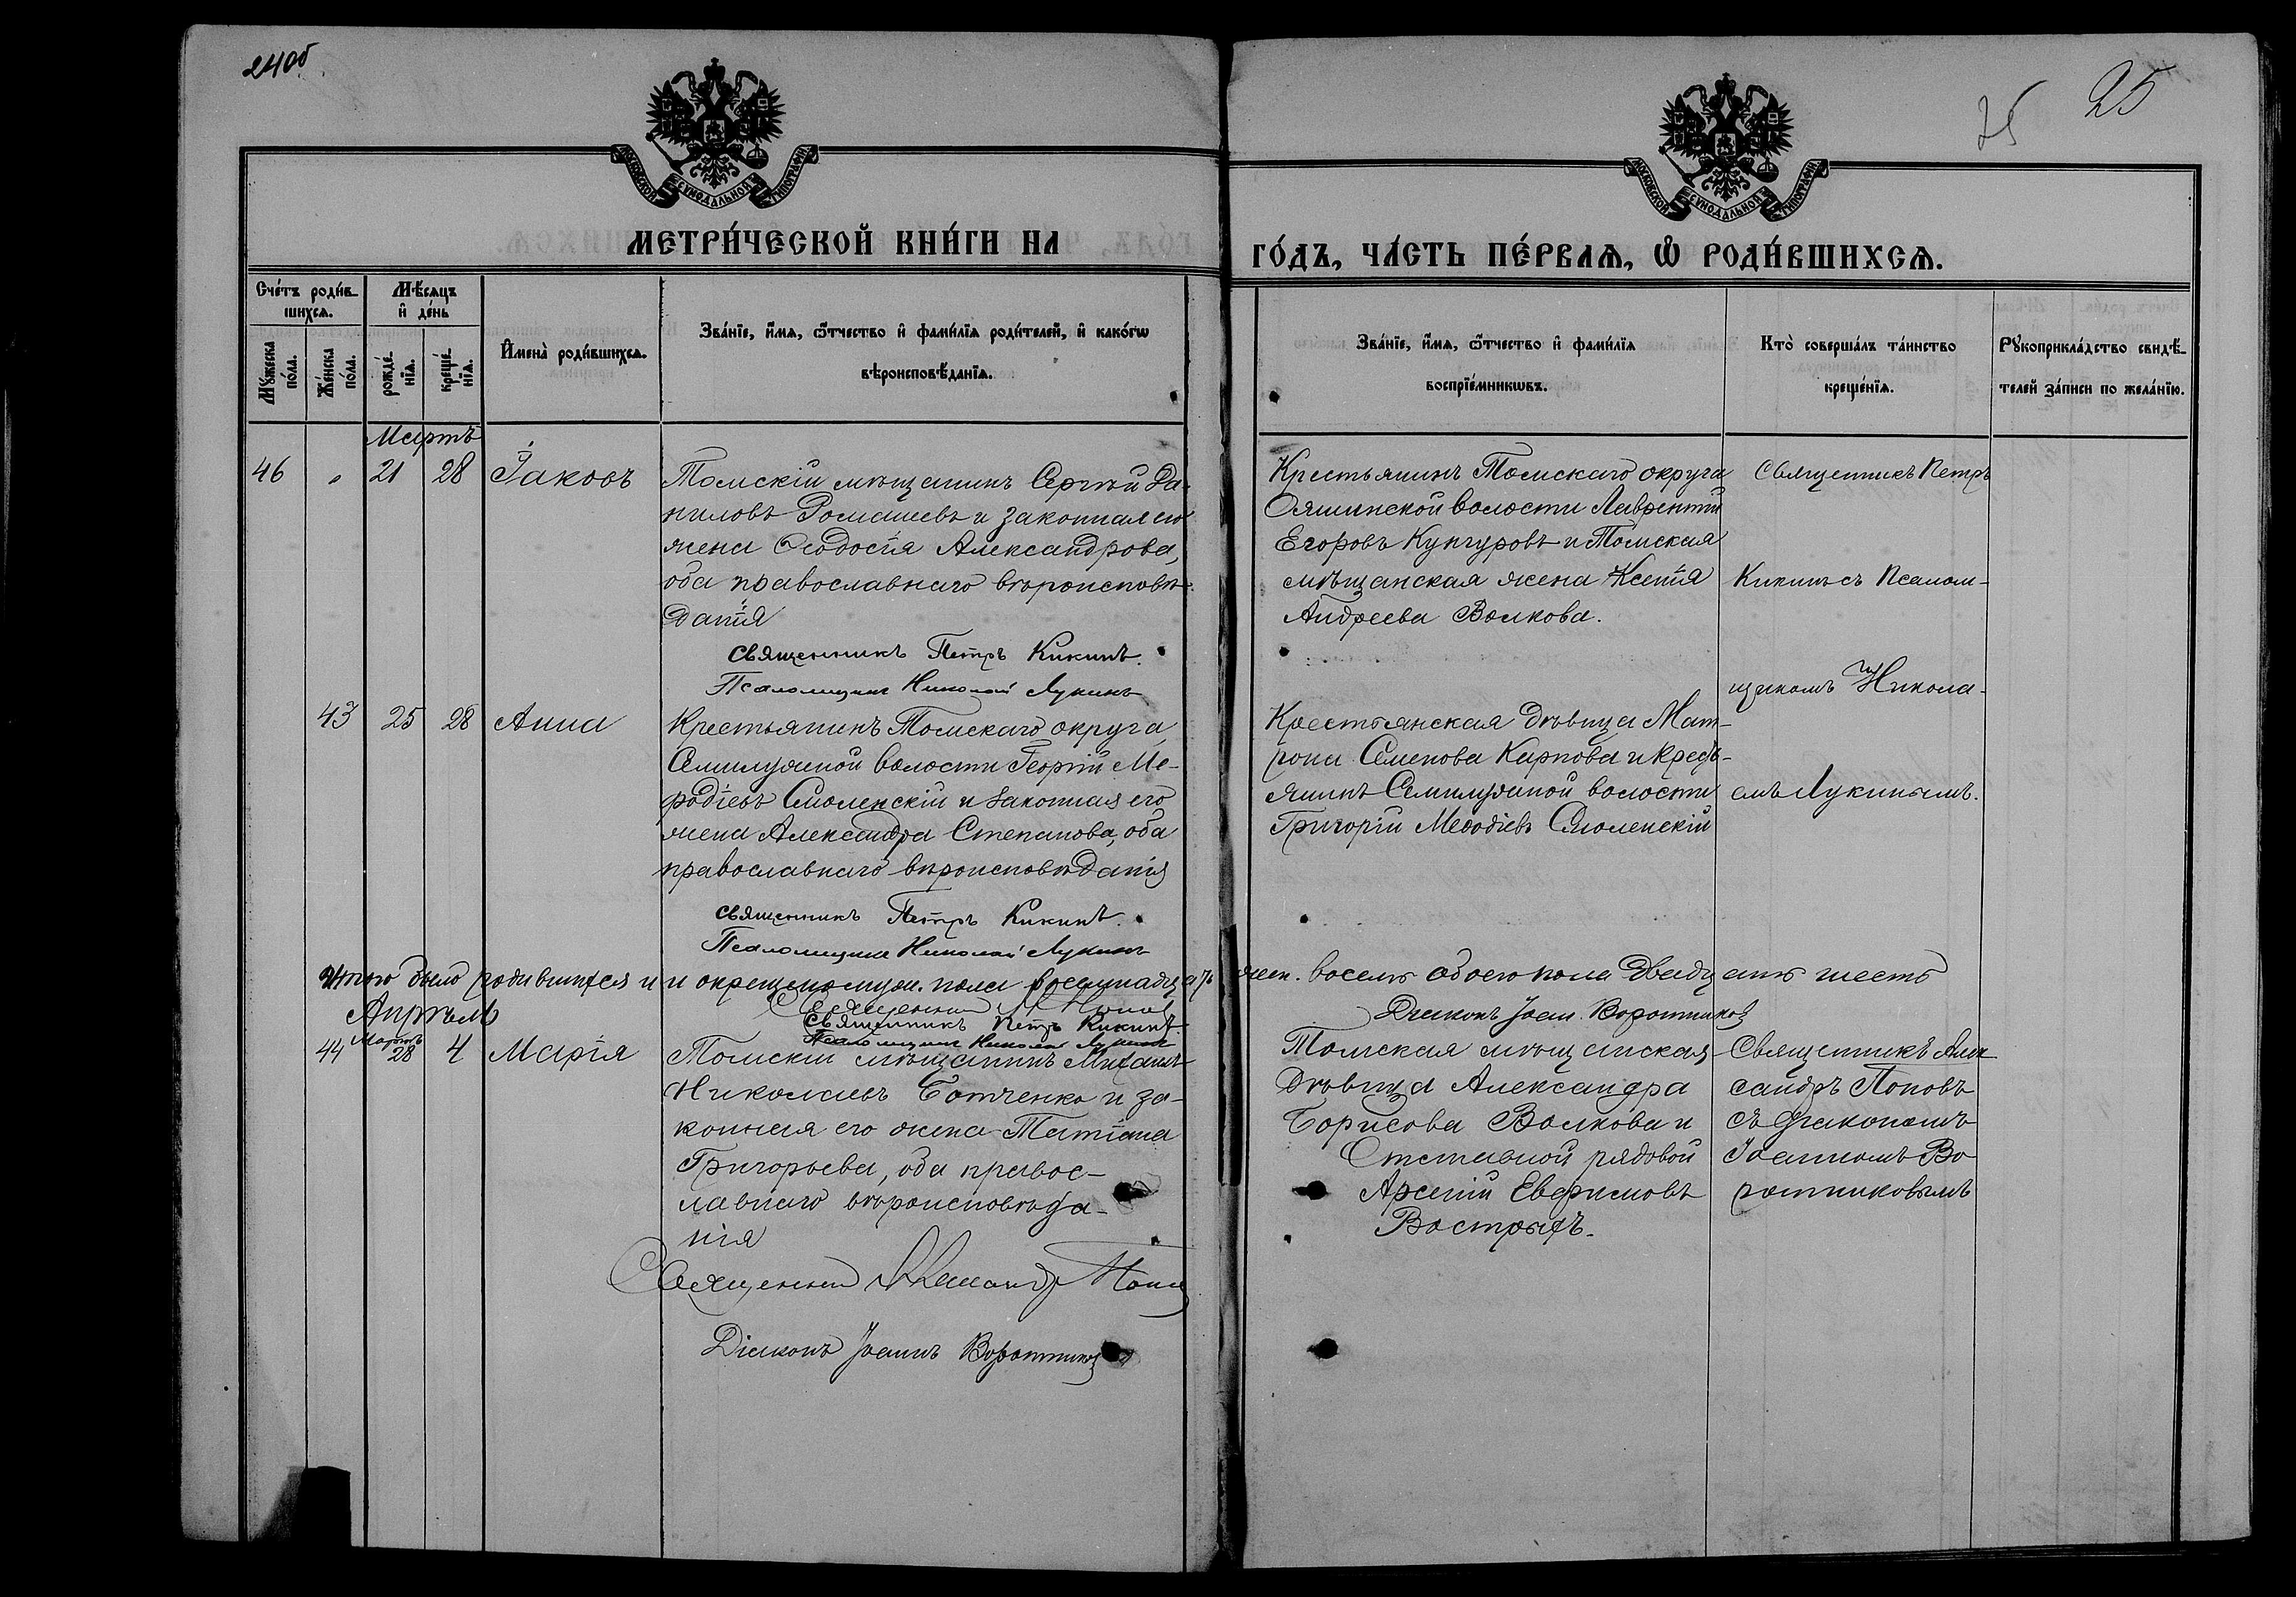 24об
25
25
МОСКОВСКОЙ СѴНОДАЛЬНОЙ ТИПОГРАФІИ
МОСКОВСКОЙ СѴНОДАЛЬНОЙ ТИПОГРАФІИ
МЕТРИ́ЧЕСКОЙ КНИ́ГИ НА
ГО́ДЪ, ЧА́СТЬ ПЕ́РВАѦ, Ѿ РОДИ́ВШИХСѦ.
Сче́тъ роди́в-
шихсѧ.
Мѣ́сѧцъ
и҆ де́нь
Мꙋ́жеска
по́ла.
Же́нска
по́ла.
рожде́-
нїѧ.
креще́-
нїѧ.
И҆мена̀ роди́вшихсѧ.
Зва́нїе, и҆́мѧ, ѻ҆́тчество и҆ фами́лїѧ роди́телей, и҆ како́гѡ
вѣроисповѣ́данїѧ.
Зва́нїе, и҆́мѧ, ѻ҆́тчество и҆ фами́лїѧ
воспрїе́мникѡвъ.
Кто̀ соверша́лъ та́инство
креще́нїѧ.
Рꙋкоприкла́дство свидѣ́-
телей за́писи по жела́нїю.
Мартъ
46 " 21 28 Іаковъ
Томскій мѣщанинъ Сергѣй Да-
ниловъ Ромашевъ и законная его
жена Ѳеодосія Александрова,
оба православнаго вѣроисповѣ-
данія
Священникъ Петръ Кикинъ.
Псаломщикъ Николай Лукинъ
Крестьянинъ Томскаго округа
Ояшинской волости Лаврентій
Егоровъ Кунгуровъ и Томская
мѣщанская жена Ксенія
Андреева Волкова.
Священникъ Петръ
Кикинъ съ Псалом-
щикомъ Никола-
емъ Лукинымъ.
43 25 28 Анна
Крестьянинъ Томскаго округа,
Семилужной волости Георгій Ме-
фодіевъ Смоленскій и законная его
жена Александра Степанова, оба
православнаго вѣроисповѣданія
Священникъ Петръ Кикинъ.
Псаломщикъ Николай Лукинъ
Крестьянская дѣвица Мат-
рона Семенова Карпова и крест-
янинъ Семилужной волости
Григорій Меѳодіевъ Смоленскій
Итого было родившихся и и окрещено муж. пола восемнадцать жен. восемь обоего пола двадцать шесть
Священникъ А Поповъ
Діаконъ Іоан. Воротниковъ
Священникъ Петръ Кикинъ.
Псаломщикъ Николай Лукинъ
Апрѣль
Мартъ
44 28 4 Марія
Томскій мѣщанинъ Михаилъ
Николаевъ Ботченко и за-
конная его жена Татіана
Григорьева, оба правос-
лавнаго вѣроисповѣда-
нія
Священникъ Александръ Поповъ
Діаконъ Іоаннъ Воротниковъ
Томская мѣщанская
дѣвица Александра
Борисова Волкова и
Отставной рядовой
Арсеній Евфимовъ
Вострыхъ.
Священникъ Алек
сандръ Поповъ
съ діакономъ
Іоанномъ Во
ротниковымъ